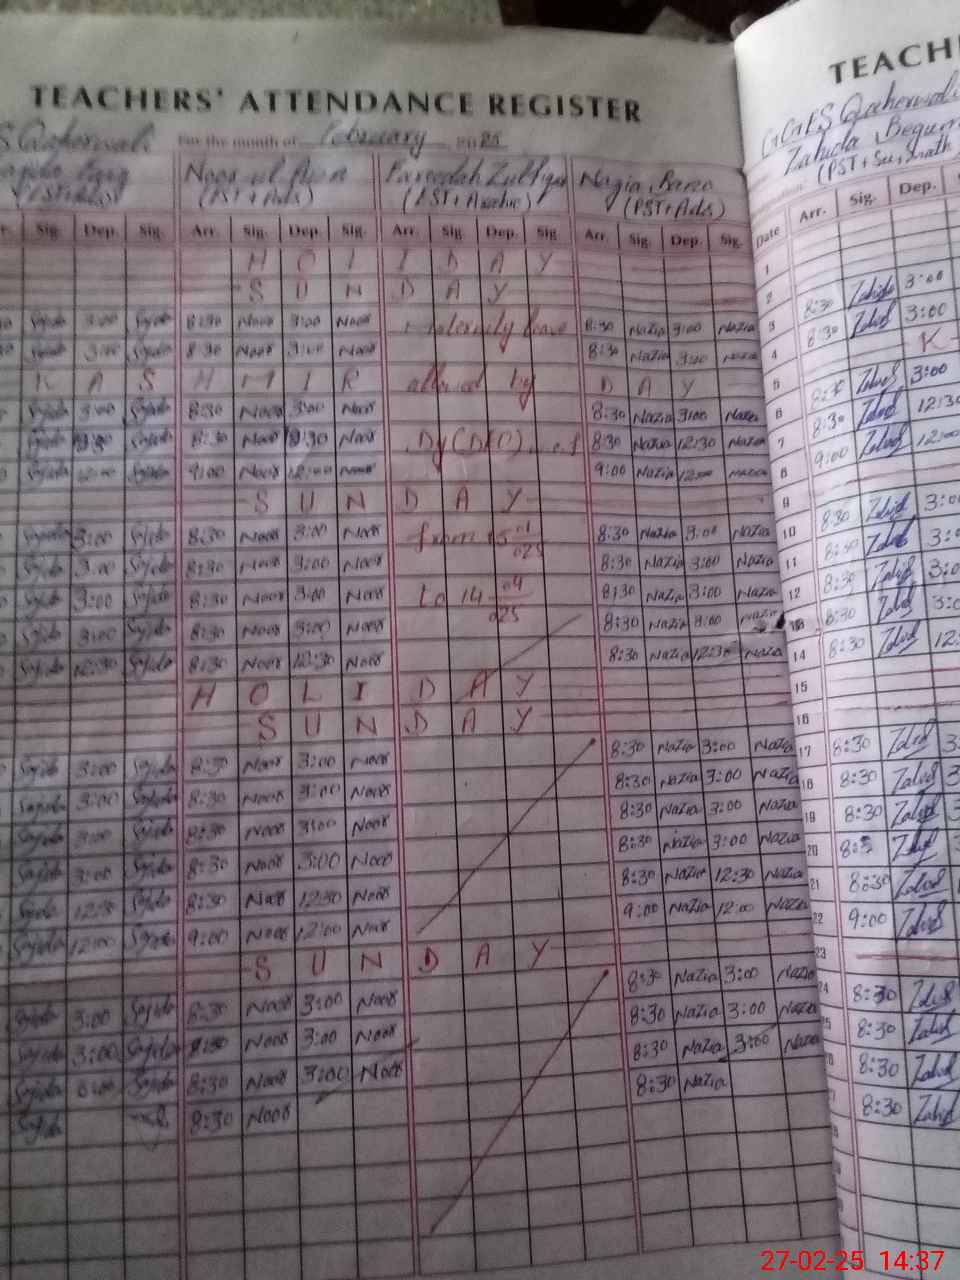 TEACHERS' ATTENDANCE REGISTER
For the month of February 2025
Noor ul Ain Fareedah Zulfiqar Nazia Bano
(PST+Ads)
Sig. Dep. Sig. Arr. Sig. Dep. Sig. Arr. Sig. Dep. Sig Arr. Sig. Dep. Sig.
H O L I D A Y
S U N D A Y
Sajida 3:00 Sajida 8:30 Noor 3:00 Noor Maternity leave 8:30 Nazia 3:00 Nazia
Sajida 3:00 Sajida 8:30 Noor 3:00 Noor 8:30 Nazia 3:00 Nazia
K A S H M I R allowed by D A Y
Sajida 3:00 Sajida 8:30 Noor 3:00 Noor 8:30 Nazia 3:00 Nazia
Sajida Sajida 8:30 Noor 12:30 Noor Dy(DEO) 8:30 Nazia 12:30 Nazia
Sajida 12:00 Sajida 9:00 Noor 12:00 Noor 9:00 Nazia 12:00 Nazia
S U N D A Y
Sajida 3:00 Sajida 8:30 Noor 3:00 Noor from 15 01/025 8:30 Nazia 3:00 Nazia
Sajida 3:00 Sajida 8:30 Noor 3:00 Noor 8:30 Nazia 3:00 Nazia
Sajida 3:00 Sajida 8:30 Noor 3:00 Noor to 14 04/025 8:30 Nazia 3:00 Nazia
Sajida 3:00 Sajida 8:30 Noor 3:00 Noor 8:30 Nazia 3:00 Nazia
Sajida 12:30 Sajida 8:30 Noor 12:30 Noor 8:30 Nazia 12:30 Nazia
H O L I D A Y
S U N D A Y
Sajida 3:00 Sajida 8:30 Noor 3:00 Noor 8:30 Nazia 3:00 Nazia
Sajida 3:00 Sajida 8:30 Noor 3:00 Noor 8:30 Nazia 3:00 Nazia
Sajida 3:00 Sajida 8:30 Noor 3:00 Noor 8:30 Nazia 3:00 Nazia
Sajida 3:00 Sajida 8:30 Noor 3:00 Noor 8:30 Nazia 3:00 Nazia
Sajida 12:30 Sajida 8:30 Noor 12:30 Noor 8:30 Nazia 12:30 Nazia
Sajida 12:00 Sajida 9:00 Noor 12:00 Noor 9:00 Nazia 12:00 Nazia
S U N D A Y
Sajida 3:00 Sajida 8:30 Noor 3:00 Noor 8:30 Nazia 3:00 Nazia
Sajida 3:00 Sajida 8:30 Noor 3:00 Noor 8:30 Nazia 3:00 Nazia
Sajida Sajida 8:30 Noor 3:00 Noor 8:30 Nazia 3:00 Nazia
Sajida 8:30 Noor 8:30 Nazia
TEACH
Zahida Begum
Date Arr. Sig. Dep.
1
2
3 8:30 Zahida 3:00
4 8:30 Zahid 3:00
5 K
6 8:30 Zahid 3:00
7 8:30 Zahid 12:30
8 9:00 Zahid 12:00
9
10 8:30 Zahid 3:0
11 8:30 Zahid 3:
12 8:30 Zahid 3:0
13 8:30 Zahid 3:0
14 8:30 Zahid 12:
15
16
17 8:30 Zahid 3:
18 8:30 Zahid 3
19 8:30 Zahid 3
20 Zahid 3
21 8:30 Zahid
22 9:00 Zahid
23
24 8:30 Zahid
8:30 Zahid
8:30 Zahid
8:30 Zahid
27-02-25 14:37